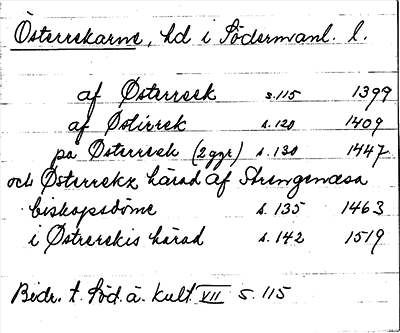 Österrekarne, hd i Södermanl. l.
af Østerreek s.115 1399
af Østirrek s.120 1409
pa Østerreek (2 ggr) s.130 1447
och Østerrekx härad af Strengenæsa
biskopsdöme s.135 1463
i Østrerekis härad s.142 1519
Bidr. t. Söd. ä. kult. VII s. 115